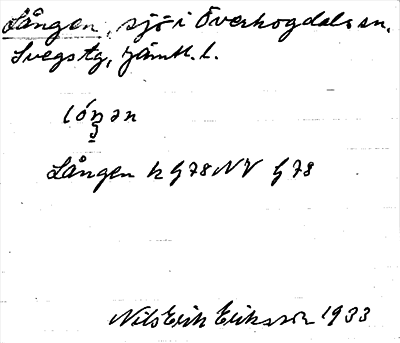 Lången, sjö i Överhogdals sn.
Svegs tg, Jämtl. l.
Lången k G78NV G78
Nils Erik Eriksson 1933